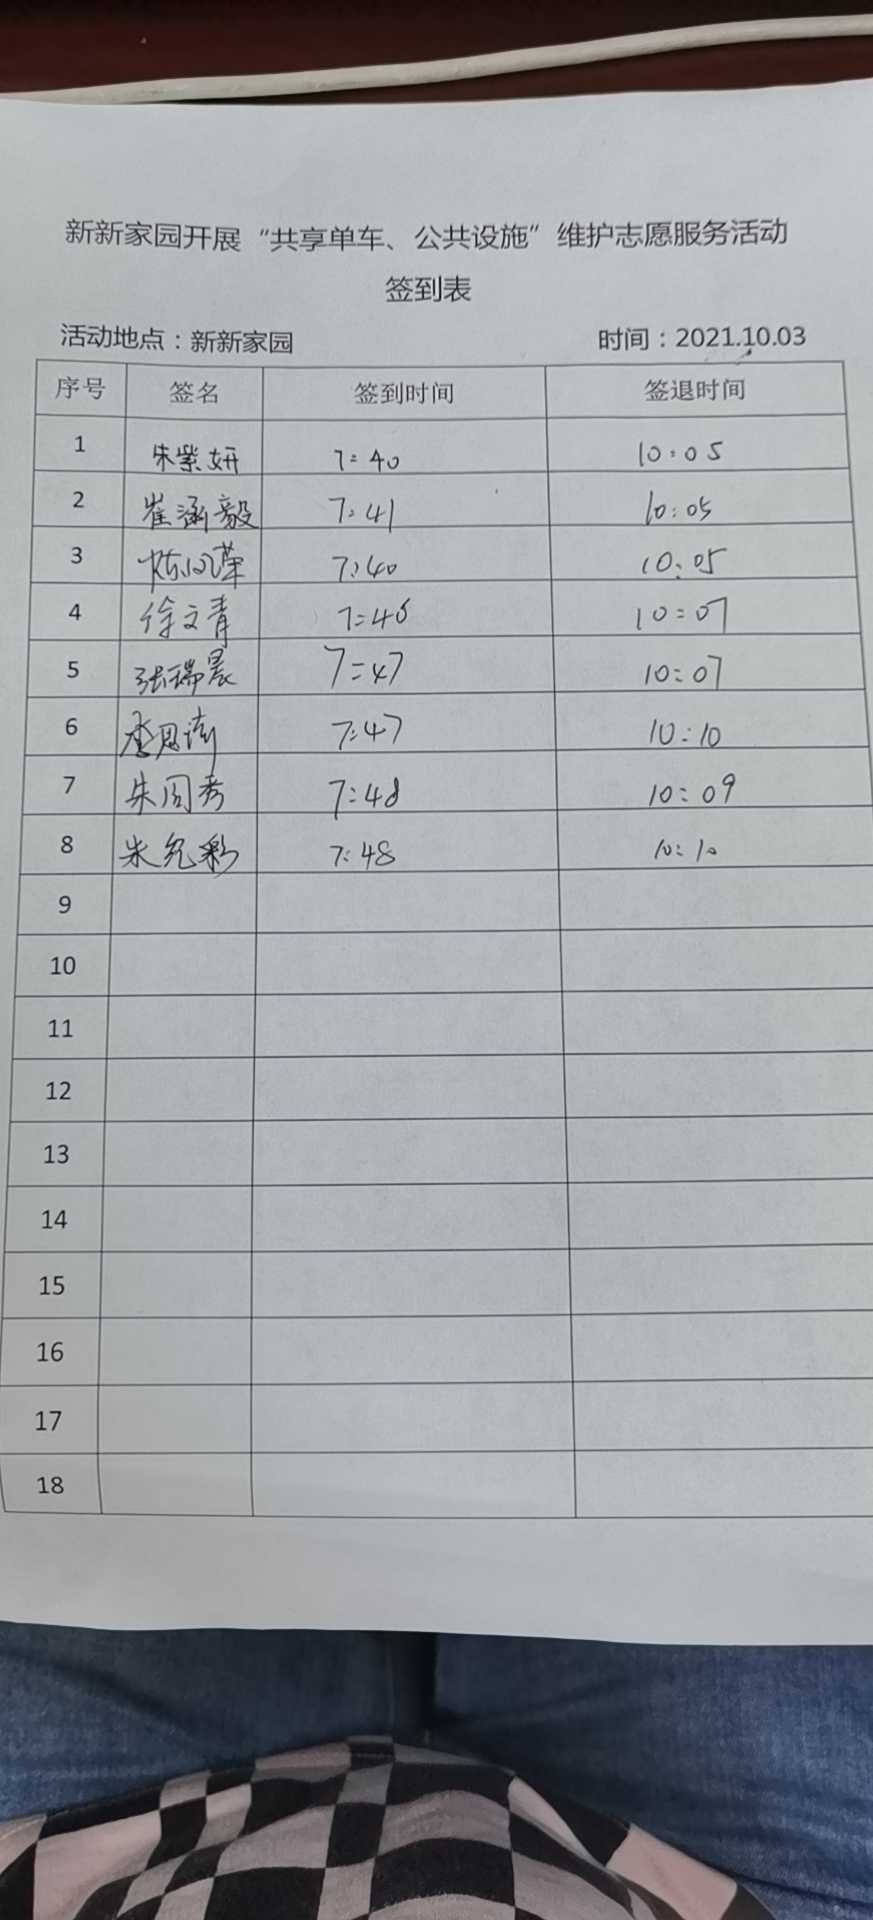 新新家园开展“共享单车、公共设施”维护志愿服务活动
签到表
活动地点：新新家园 时间：2021.10.03
序号 签名 签到时间 签退时间
1 朱紫妍 7:40 10:05
2 崔涵毅 7:41 10:05
3 7:40 10:05
4 徐文青 7:46 10:07
5 张瑞晨 7:47 10:07
6 7:47 10:10
7 朱周秀 7:48 10:09
8 朱允彩 7:48 10:10
9
10
11
12
13
14
15
16
17
18